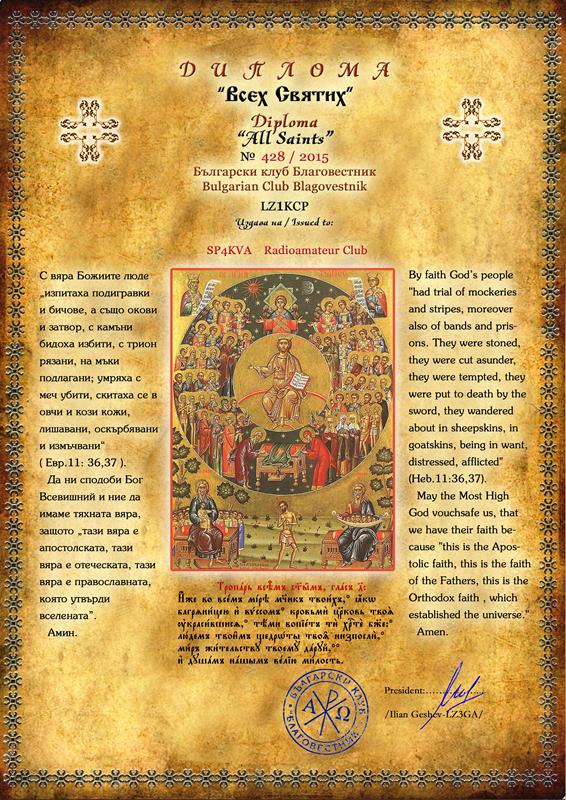 ДИПЛОМА
"Всех Святих"
Diploma
"All Saints"
№ 428 / 2015
Български клуб Благовестник
Bulgarian Club Blagovestnik
LZ1KCP
Издава на / Issued to:
SP4KVA Radioamateur Club
С вяра Божиите люде
„изпитаха подигравки
и бичове, а също окови
и затвор, с камъни
бидоха избити, с трион
рязани, на мъки
подлагани; умряха с
меч убити, скитаха се в
овчи и кози кожи,
лишавани, оскърбявани
и измъчвани“
( Евр.11: 36,37 ).
Да ни сподоби Бог
Всевишний и ние да
имаме тяхната вяра,
защото „тази вяра е
апостолската, тази
вяра е отеческата, тази
вяра е православната,
която утвърди
вселената”.
Амин.
By faith God's people
"had trial of mockeries
and stripes, moreover
also of bands and pris-
ons. They were stoned,
they were cut asunder,
they were tempted, they
were put to death by the
sword, they wandered
about in sheepskins, in
goatskins, being in want,
distressed, afflicted"
(Heb.11:36,37).
May the Most High
God vouchsafe us, that
we have their faith be-
cause "this is the Apos-
tolic faith, this is the faith
of the Fathers, this is the
Orthodox faith , which
established the universe."
Amen.
Тропарь всѣмъ ст҃ымъ, гласъ д҃:
Иже во всемъ мірѣ мч҃никъ твоихъ, ꙗкѡ
багряницею и вуссомъ кровьми цр҃ковь твоѧ
ѹкрасившисѧ, тѣми вопіетъ ти хрⷭ҇те бж҃е:
людемъ твоимъ щедрѡты твоѧ низпосли,
миръ жительству твоему даруй,
и душамъ нашымъ велію милость.
БЪЛГАРСКИ КЛУБ
Α Ω
БЛАГОВЕСТНИК
President:
/Ilian Geshev-LZ3GA/